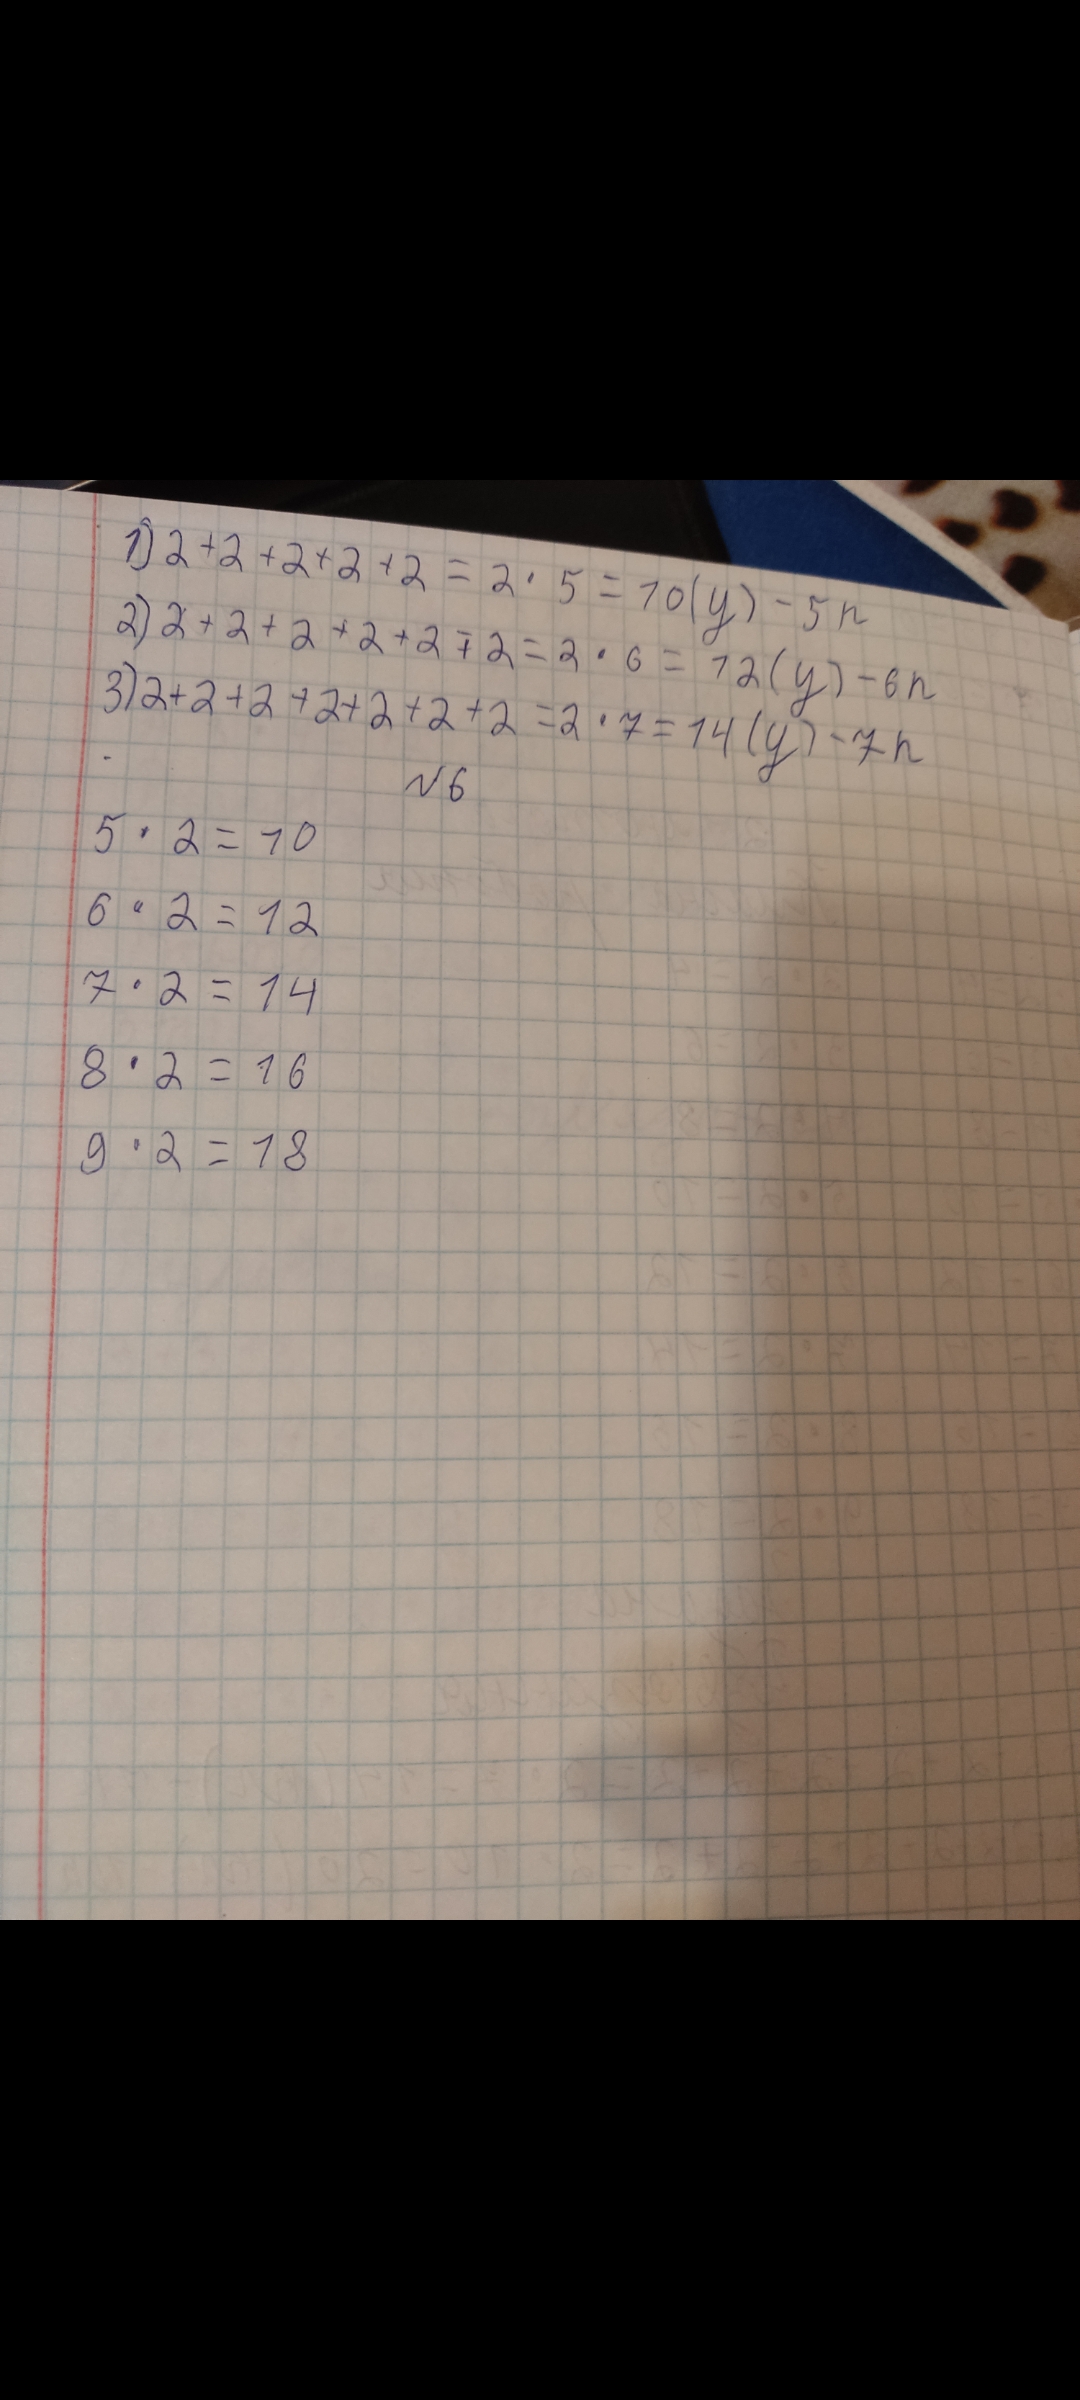 1) 2+2+2+2+2=2·5=10(у)-5п
2) 2+2+2+2+2+2=2·6=12(у)-6п
3) 2+2+2+2+2+2+2=2·7=14(у)-7п
№6
5·2=10
6·2=12
7·2=14
8·2=16
9·2=18